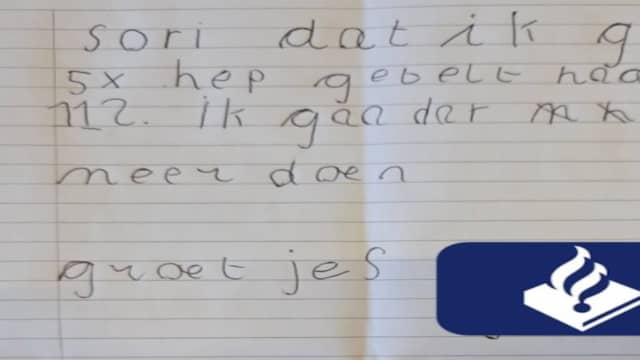 sori dat ik g
5x hep gebelt naa
112. ik gaa dar
meer doen
groetjes